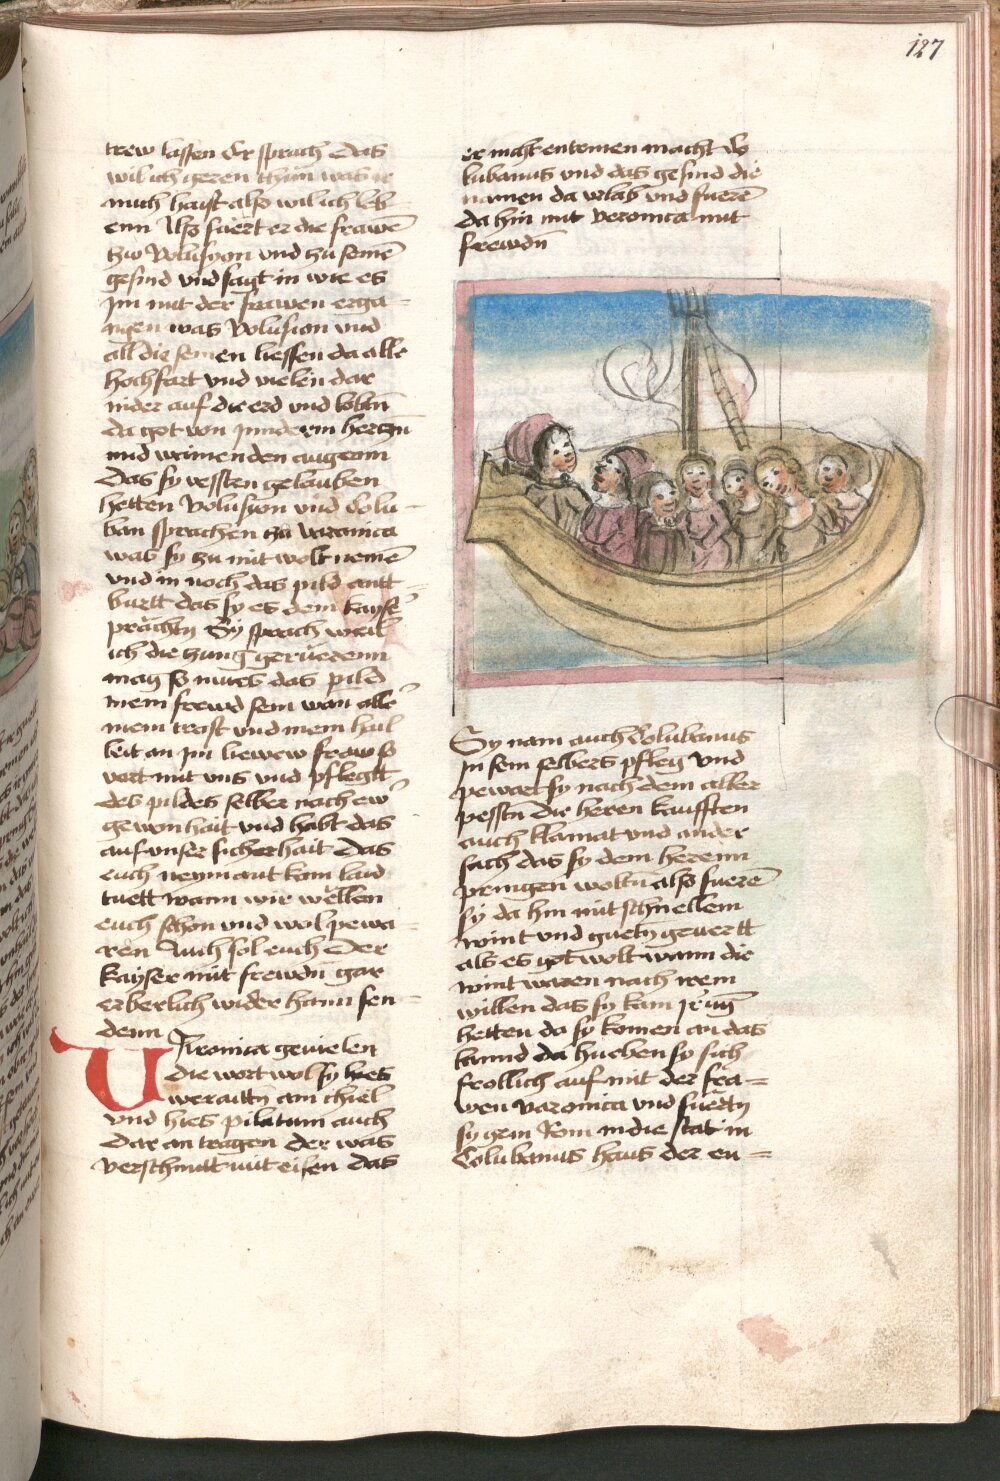 127
trew lassen Er sprach das
wil ich geren thun was ir
mich haist also wil ich leb
enn Also fuert er die frawē
zw Volusyon vnd zu seinē
gesind vnd sagt in wie es
jm mit der frawen erga=
ngen was Volusion vnd
all die seinen liessen da alle
hochfart vnd vielen dar
nider auf die erd vnd lobtn
da got von jnnderm hertzn
mit weinenden augenn
das sy vessten gelauben
hetten Volusion vnd Colu=
ban sprachen zu varonica
was sy zu mit wolt nemē
vnd in noch das pild antt=
burtt das sy es dem kayser
prächtn Sy sprach weil
ich die zung gerüerenn
mag so mues das pild
mein frewd sein wan alle
mein trost vnd mein hail
leit an jm liebew fraw so
vart mit vns vnd pflegtt
des pildes selber nach ew
gewonhait vnd habt das
auf vnser sicherhait das
euch nymant kain laid
tuett wann wir wellen
euch schon vnd wol pewa=
ren Auch sol euch der
kayser mit frewdn gar
erberlich wider haim sen=
denn
Veronica geuielen
die wort wol sy hies
weraittn ain chiel
vnd hies pilatum auch
dar an tragen der was
verschmitt mit eisen das
er nicht entrinen macht do
lubanus vnd das gesind die
namen da vrlab vnd fuerē
da hin mit veronica mit
frewdn
Sy nam auch Colubanus
in sein selbers pfleg vnd
pewart sy nach dem aller
pesstn die heren kaufften
auch klainat vnd ander
sach das sy dem herenn
pringen woltn also fuerē
sy da hin mit schnellem
wint vnd guetn geuertt
als es got wolt wann die
wint waren nach irem
willen das sy kain jrūg
hetten da sy komen an das
lannd da hueben sy sich
frolich auf mit der fra=
wen varonica vnd fuertn
sy gein Rom in die stat in
Colubanus haus der en=